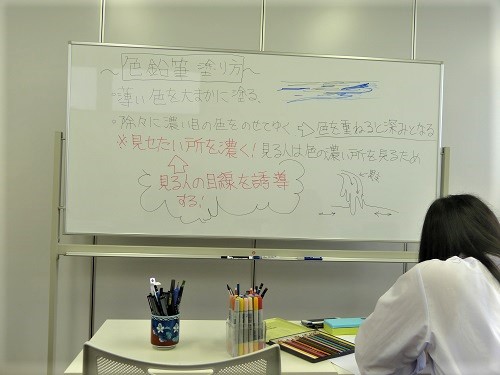 ～色鉛筆 塗り方～
・薄い色を大まかに塗る、
・除々に濃い目の色をのせてゆく ⇨ 色を重ねると深みとなる
※見せたい所を濃く！見る人は色の濃い所を見るため
見る人の目線を誘導
する！